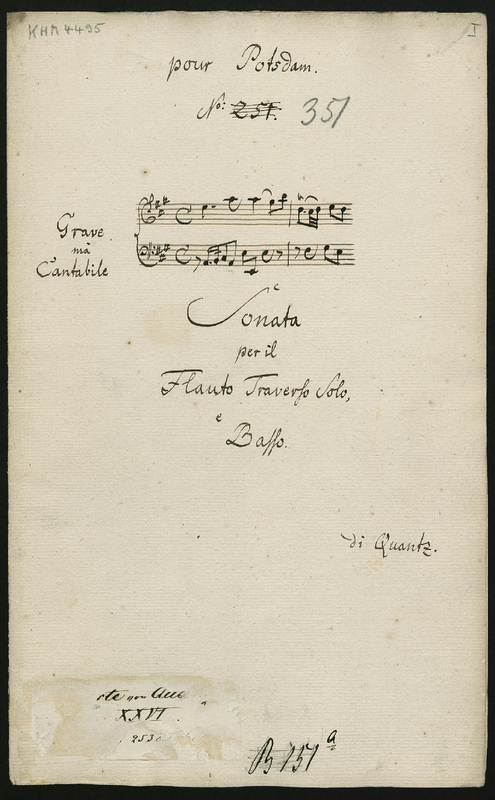 KHM 4495
I
pour Potsdam.
No: 251. 351
Grave
mà
Cantabile
Sonata
per il
Flauto Traverso Solo,
e
Basso.
di Quantz.
XXVI.
253.